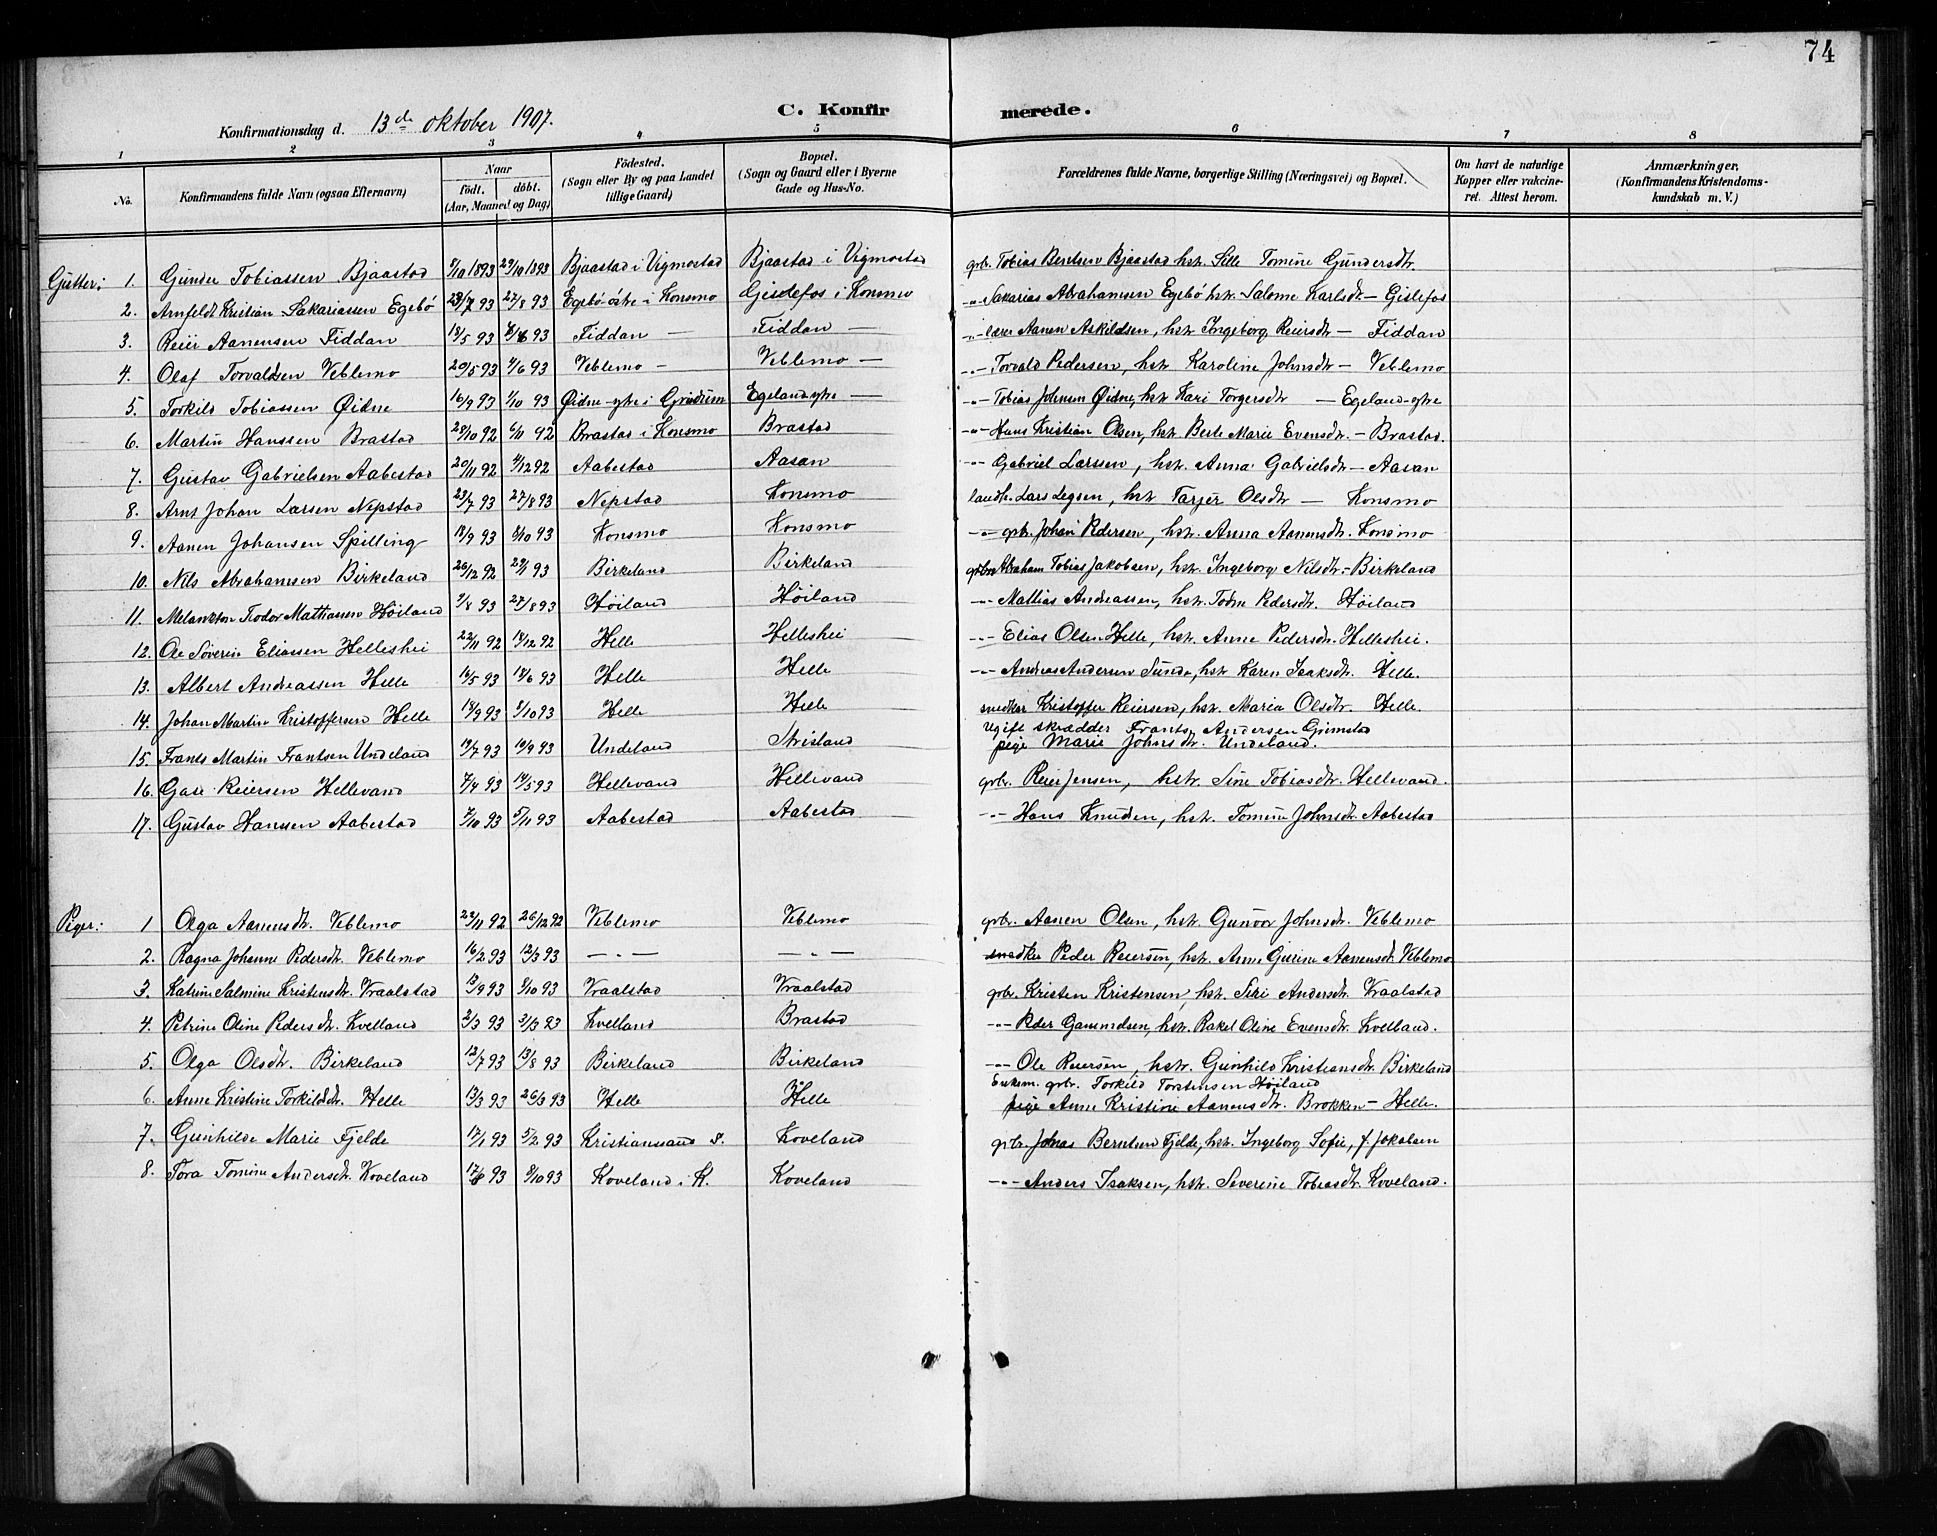 74
Konfirmationsdag d. 13de oktober 1907. C. Konfirmerede.
1 2 3 4 5 6 7 8
No. Konfirmandens fulde Navn (ogsaa Efternavn) Naar födt. döbt. (Aar, Maaned og Dag) Födested. (Sogn eller By og paa Landet tillige Gaard) Bopæl. (Sogn og Gaard eller i Byerne Gade og Hus-No. Forældrenes fulde Navne, borgerlige Stilling (Næringsvei) og Bopæl. Om havt de naturlige Kopper eller vakcineret. Attest herom. Anmærkninger, (Konfirmandens Kristendomskundskab m. V.)
Gutter: 1. Gunder Tobiassen Bjaastad /10 1893 29/10 1893 Bjaastad i Vigmostad Bjaastad i Vigmostad gbr. Tobias Berntsen Bjaastad hstr. Sille Tomine Gundersdtr.
2. Arnfeldt Kristian Sakariassen Egebö 23/7 93 27/8 93 Egebö östre i Konsmo Gisdefos i Konsmo -"- Sakarias Abrahamsen Egebö hstr. Salome Karlsdtr - Gislefos
3. Reier Aanensen Fiddan 18/5 93 93 Fiddan — Fiddan — -"- lærer Aanen Askildsen, hstr. Ingeborg Reiersdtr — Fiddan
4. Olaf Torvaldsen Veblemo 20/5 93 4/6 93 Veblemo — Veblemo — -"- Torvald Pedersen, hstr. Karoline Johnsdtr — Veblemo
5. Torkild Tobiassen Øidne 16/9 93 1/10 93 Øidne-ytre i Grindum Egeland-ytre — -"- Tobias Johnsen Øidne, hstr Kari Torgersdtr — Egeland-ytre
6. Martin Hanssen Brastad 28/10 92 6/11 92 Brastad i Konsmo Brastad -"- Hans Kristian Olsen, hstr. Berte Marie Evensdtr. - Brastad.
7. Gustav Gabrielsen Aabestad 20/11 92 4/12 92 Aabestad Aasan -"- Gabriel Larssen, hstr. Anna Gabrielsdtr — Aasan
8. Arnt Johan Larsen Nepstad 23/7 93 27/8 93 Nepstad Konsmo landh. Lars Legsen, hstr. Tarjer Olsdtr — Konsmo
9. Aanen Johansen Spilling 18/9 93 8/10 93 Konsmo Konsmo -"- gbr. Johan Pedersen, hstr. Anna Aanensdtr. Konsmo
10. Nils Abrahamsen Birkeland 26/12 92 22/1 93 Birkeland Birkeland Abraham Tobias Jakobsen, hstr. Ingeborg Nilsdtr. - Birkeland
11. Melankton Teodor Mathiassen Höiland /8 93 27/8 93 Höiland Höiland -"- Mathias Andreassen, hstr. Pedersdtr. Höiland
12. Ole Söverin Eliassen Helleshei 22/11 92 18/12 92 Helle Helleshei -"- Elias Olsen Helle, hstr. Anne Pedersdtr. Helleshei.
13. Albert Andreassen Helle 14/5 93 18/6 93 Helle Helle -"- Andreas Andersen Sunde, hstr. Karen Isaksdtr. Helle.
14. Johan Martin Kristoffersen Helle 18/9 93 8/10 93 Helle Helle snedker Kristoffer Reiersen, hstr. Maria Olsdtr. Helle.
15. Frants Martin Frantsen Undeland 19/7 93 10/9 93 Undeland Strisland Ugift skrædder Frants Andersen Grimstad
pige Marie Johnsdtr. Undeland.
16. Gase Reiersen Hellevand 7/4 93 14/5 93 Hellevand Hellevand gbr. Reier Jensen, hstr. Sine Tobiasdtr. Hellevand.
17. Gustav Hanssen Aabestad 7/10 93 5/11 93 Aabestad Aabestad -"- Hans Knudsen, hstr. Tomine Johnsdtr. Aabestad
Piger: 1 Olga Aanensdtr. Veblemo 22/11 92 26/12 92 Veblemo Veblemo gbr. Aanen Olsen, hstr. Gunvor Johnsdtr. Veblemo
2. Ragna Johanne Pedersdtr. Veblemo 16/2 93 12/3 93 — " — — " — snedker Peder Reiersen, hstr. Anne Gurine Aanensdtr Veblemo
3. Katrine Salmine Kristensdtr. Vraalstad 13/9 93 8/10 93 Vraalstad Vraalstad gbr. Kristen Kristensen, hstr. Siri Andersdtr. Vraalstad
4. Petrine Oline Pedersdtr. Kvelland 2/3 93 /3 93 Kvelland Brastad -"- Peder Gammelsen, hstr. Rakel Oline Evensdtr. Kvelland.
5. Olga Olsdtr. Birkeland 12/7 93 13/8 93 Birkeland Birkeland -"- Ole Reiersen, hstr. Gunhild Kristiansdtr. Birkeland
6. Anne Kristine Torkildsdtr. Helle 13/3 93 26/3 93 Helle Helle Enkem. gbr. Torkild Torstensen Höiland
pige Anne Kristine Aanensdtr. Brokken - Helle.
7. Gunhilde Marie Fjelde 12/1 93 5/2 93 Kristianssand S. Koveland gbr. Johas Berntsen Fjelde, hstr. Ingeborg Sofie, f. Jakobsen
8. Tora Tomine Andersdtr. Koveland 93 8/10 93 Koveland i K. Koveland -"- Anders Isaksen, hstr. Severine Tobiasdtr. Koveland.